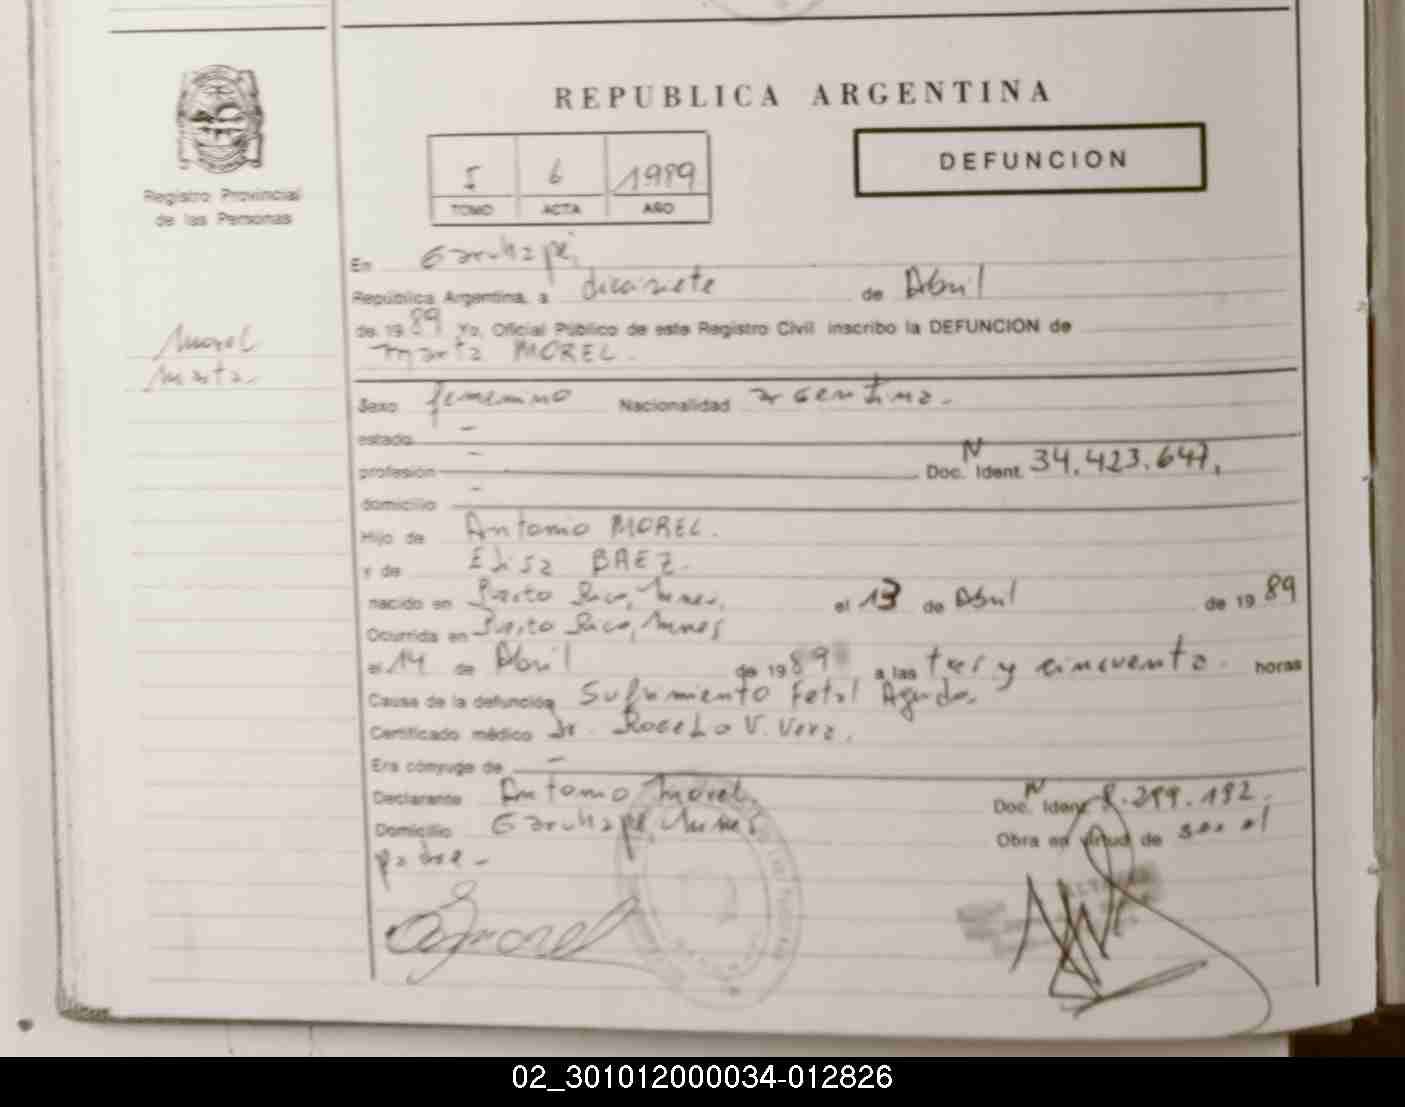 REPUBLICA ARGENTINA
Registro Provincial
de las Personas
I 6 1989
TOMO ACTA AÑO
DEFUNCION
En Garuhapé,
República Argentina, a diecisiete de Abril
de 1989 Yo, Oficial Público de este Registro Civil inscribo la DEFUNCION de
Marta MOREL.
Morel
Marta.
Sexo femenino Nacionalidad argentina.
estado -
profesión - Doc. Ident. N 34.423.647,
domicilio -
Hijo de Antonio MOREL.
y de Elisa BAEZ.
nacido en Puerto Rico, Mnes, el 13 de Abril de 1989
Ocurrida en Puerto Rico, Mnes
el 14 de Abril de 1989 a las tres y cincuenta. horas
Cause de la defunción Sufrimiento Fetal Agudo.
Certificado médico Dr. V. Vera.
Era cónyuge de -
Declarante Antonio Morel, Doc. Ident N 8.299.192.
Domicilio Garuhapé, Mnes Obra en virtud de ser el
padre -
02_301012000034-012826